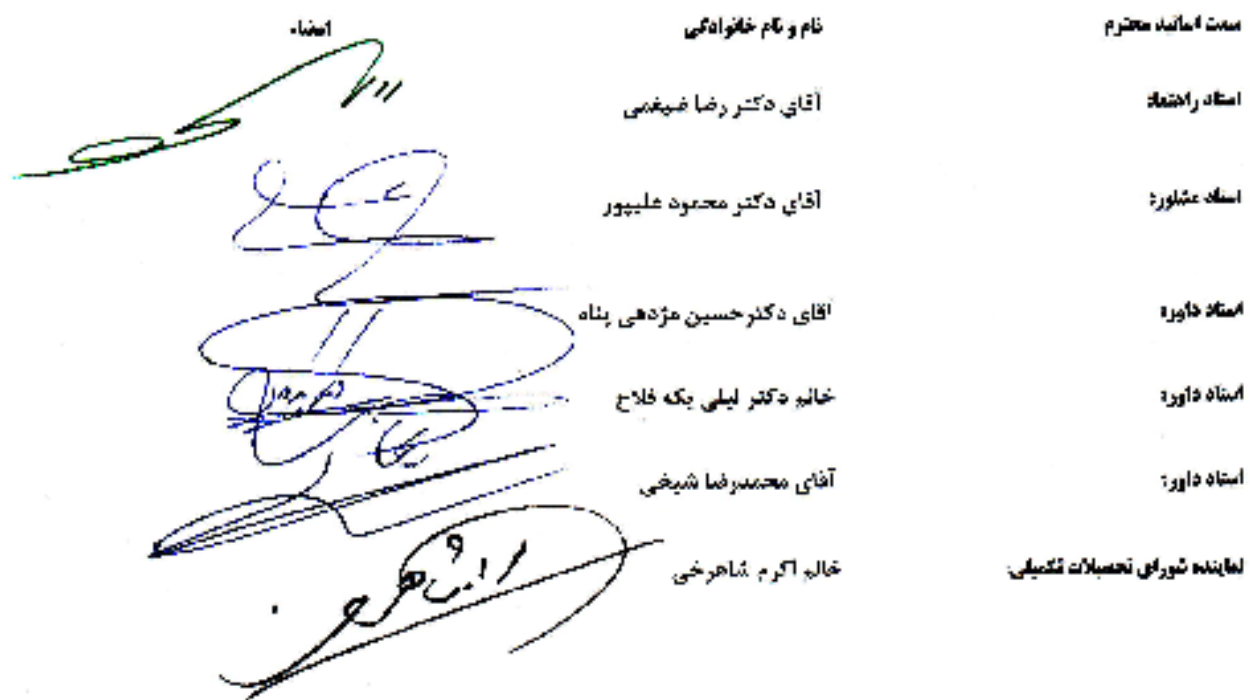 سمت اساتید محترم نام و نام خانوادگی امضاء
استاد راهنما: آقای دکتر رضا ضیغمی
استاد مشاور: آقای دکتر محمود علیپور
استاد داور: آقای دکتر حسین مژدهی پناه
استاد داور: خانم دکتر لیلی یکه فلاح
استاد داور: آقای محمدرضا شیخی
نماینده شورای تحصیلات تکمیلی: خانم اکرم شاهرخی